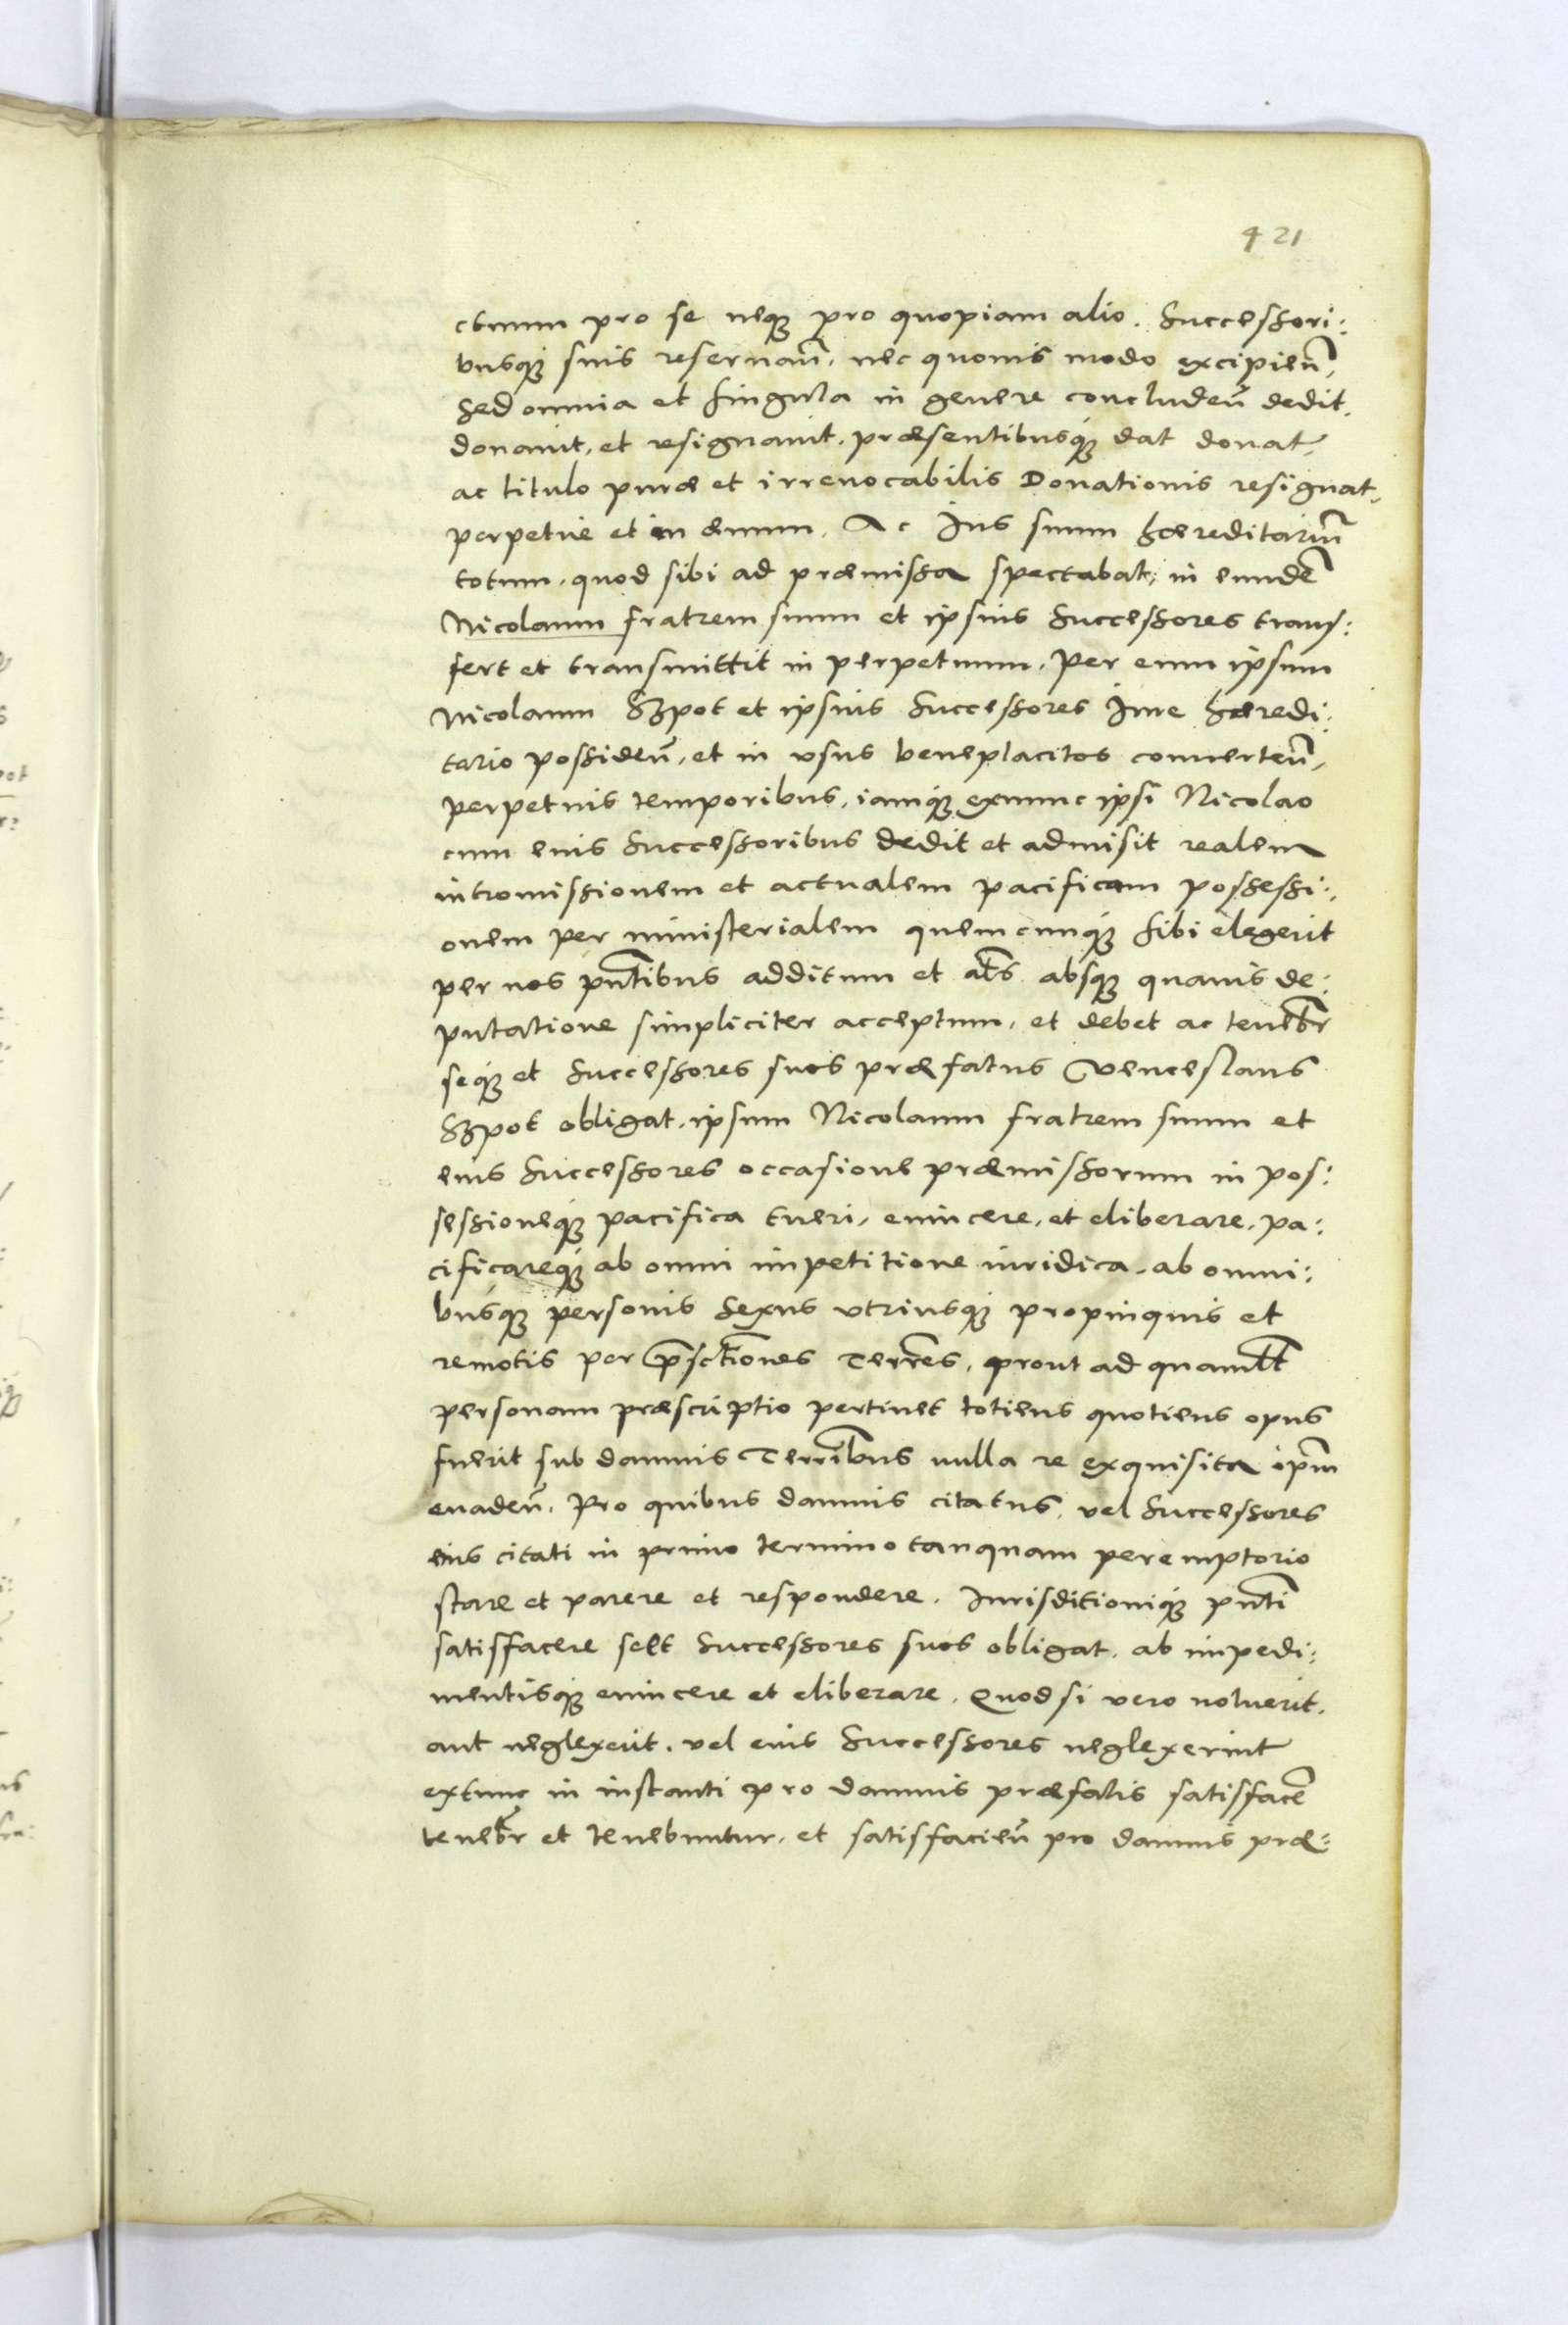 421
ctmum pro se neq₃ pro quopiam alio. Successori:
busq₃ suis reseruan̄, nec quouis modo excipien̄,
sed omnia et singula in genere concluden̄ dedit,
donauit, et resignauit, præsentibusq₃ dat donat,
ac titulo puræ et irreuocabilis Donationis resignat,
perpetue et in æuum. Ac Jus suum hæreditariū
totum, quod sibi ad præmissa spectabat, in eundē
Nicolaum fratrem suum et ipsius Successores trans:
fert et transmittit in perpetuum. Per eum ipsum
Nicolaum Szpot et ipsius Successores Jure hæredi:
tario possiden̄, et in vsus beneplacitos conuerten̄,
perpetuis temporibus, iamq₃ exnunc ipsi Nicolao
cum eius Successoribus dedit et admisit realem
intromissionem et actualem pacificam possessi:
onem per ministerialem quemcunq₃ sibi elegerit
per nos pn̄tibus additum et at̄s absq₃ quauis de:
putatione simpliciter acceptum, et debet ac teneb̄r
seq₃ et Successores suos præfatus Venceslaus
Szpot obligat, ipsum Nicolaum fratrem suum et
eius Successores occasione præmissorum in pos:
sessioneq₃ pacifica tueri, euincere, et eliberare, pa:
cificareq₃ ab omni impetitione iuridica, ab omni:
busq₃ personis sexus vtriusq₃ propinquis et
remotis per p̄sct̄iones Terr̄es, prout ad quaml̄t
personam præscriptio pertinet totiens quotiens opus
fuerit sub damnis Terr̄ibus nulla re exquisita ip̄m
euaden̄. Pro quibus damnis citatus, vel Successores
eius citati in primo termino tanquam peremptorio
stare et parere et respondere. Jurisditioniq₃ pn̄ti
satisfacere se et Successores suos obligat, ab impedi:
mentisq₃ euincere et eliberare. Quod si vero noluerit,
aut neglexerit, vel eius Successores neglexerint
extunc in instanti pro damnis præfatis satisfacē
teneb̄r et tenebuntur, et satisfacien̄ pro damnis præ: